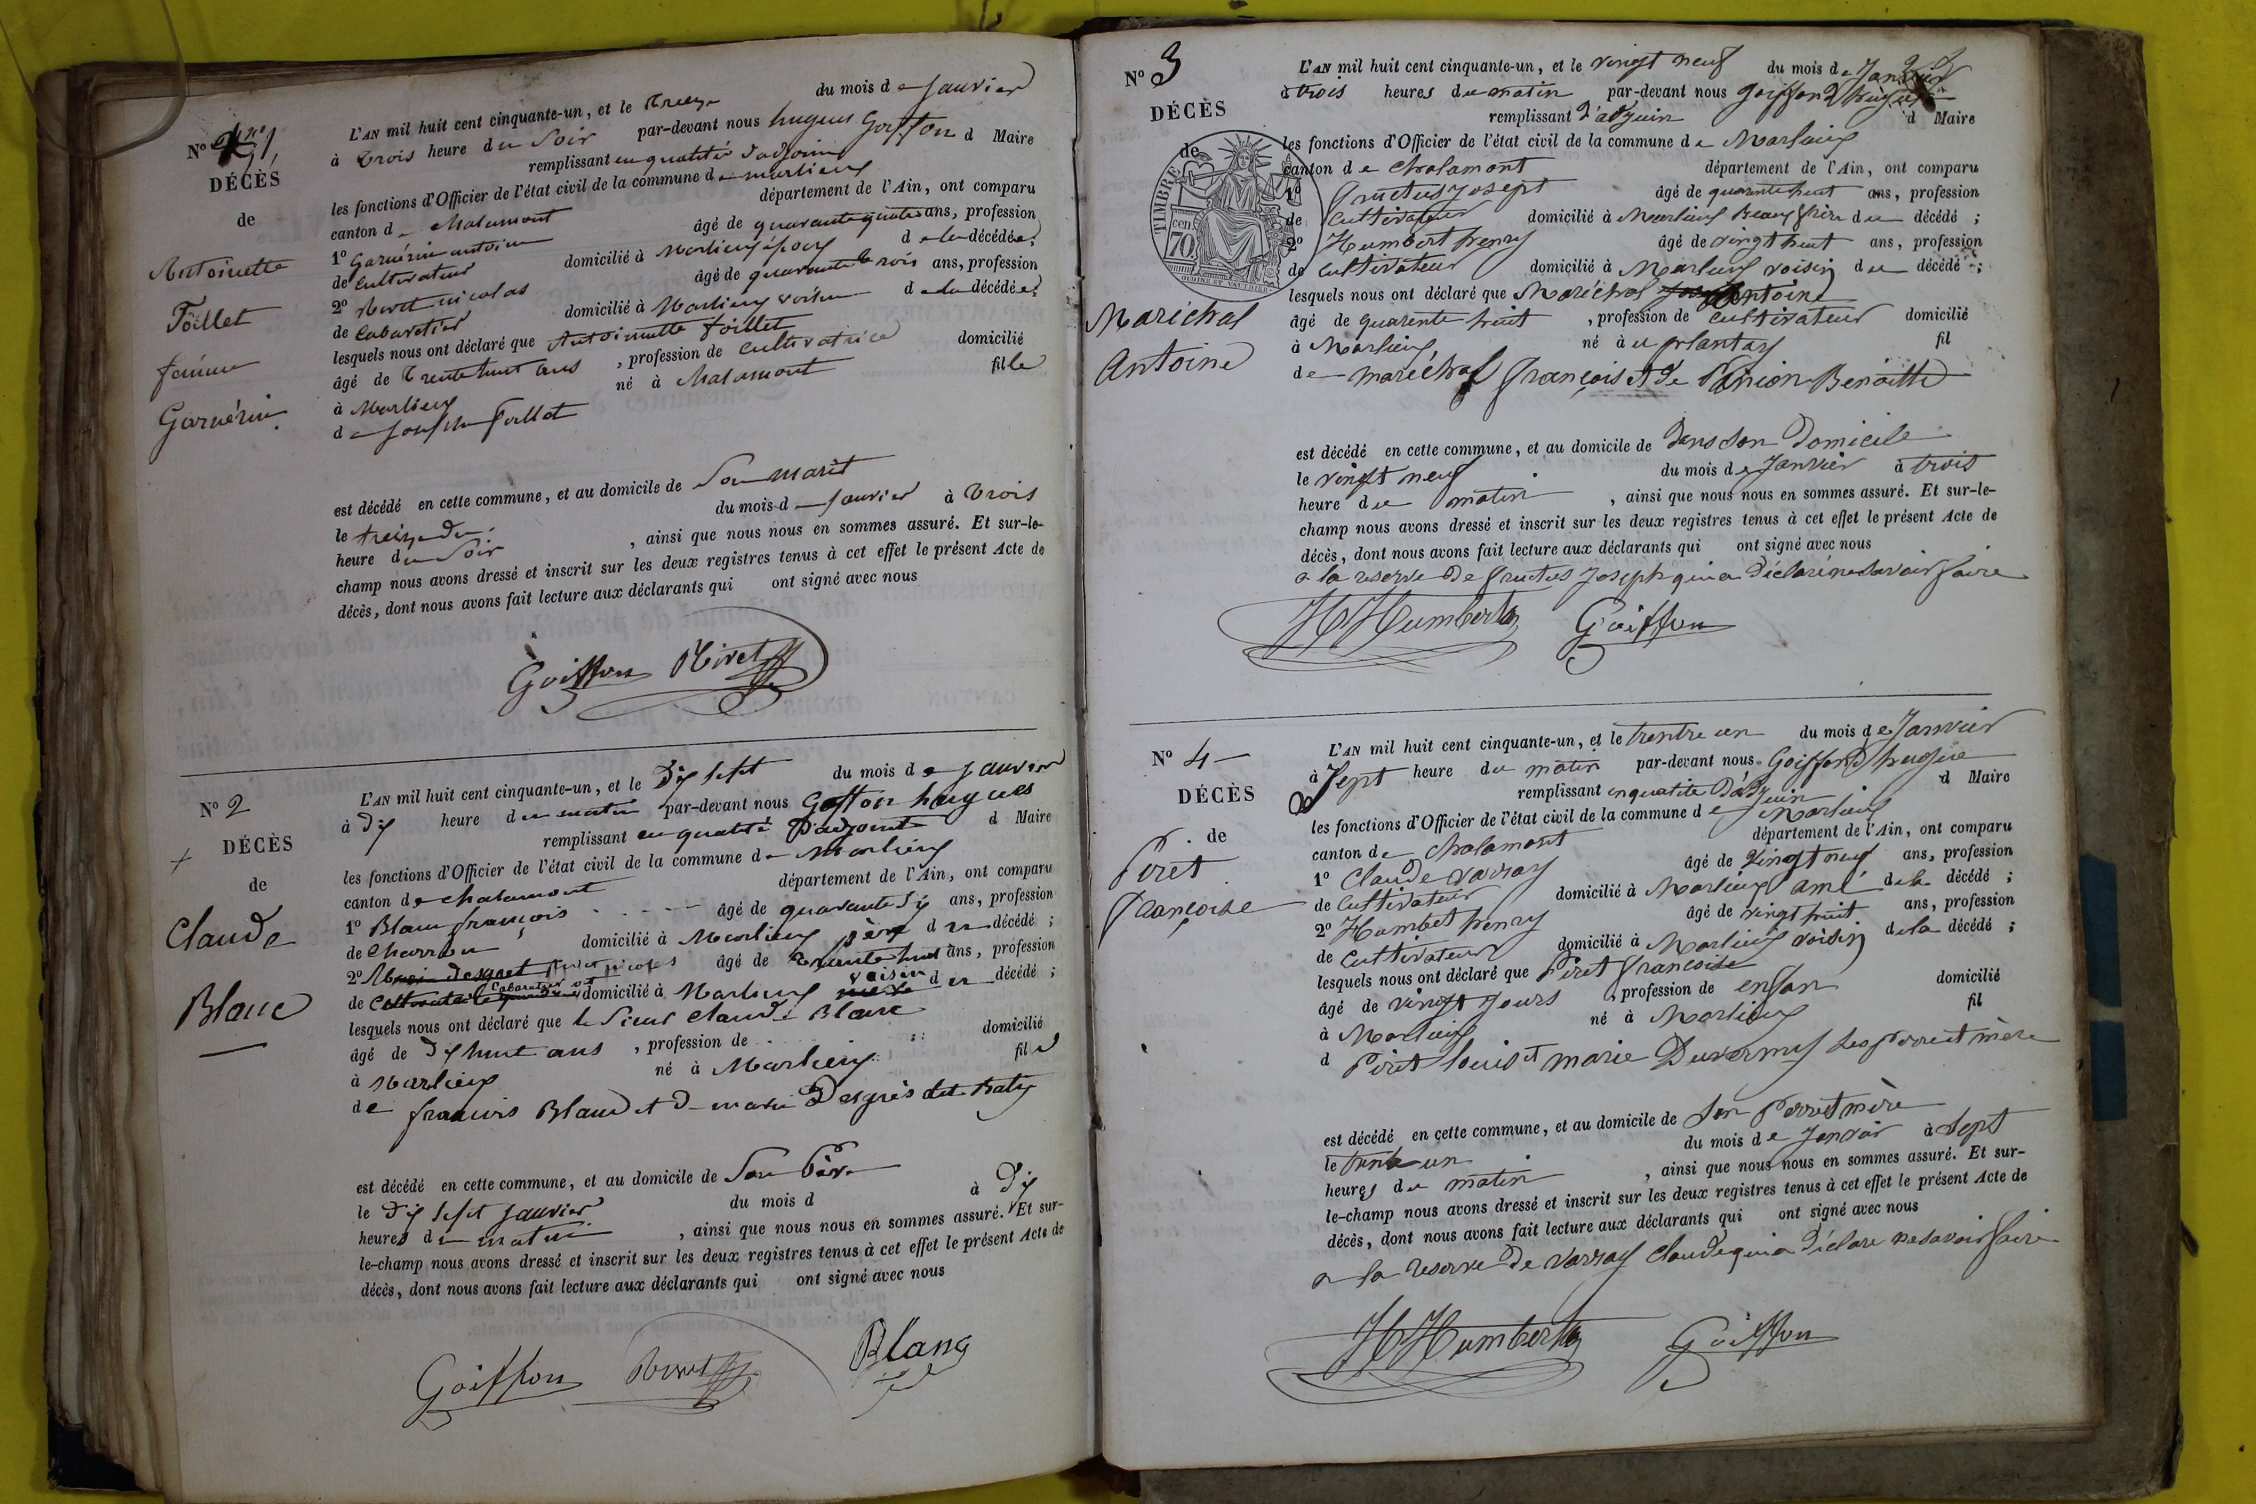 N° 1
DÉCÈS
de
Antoinette
Foillet
femme
Garnérin.
L'AN mil huit cent cinquante-un, et le treize du mois de janvier
à trois heure du soir par-devant nous hugues Goiffon d Maire
remplissant en qualité d'adjoint
les fonctions d'Officier de l'état civil de la commune de marlieux
canton de chalamont département de l'Ain, ont comparu
1° Garnérin antoine âgé de quarante quatre ans, profession
de cultivateur domicilié à Marlieux époux de la décédée;
2° Nivet nicolas âgé de quarante trois ans, profession
de cabaretier domicilié à Marlieux voisin de la décédée;
lesquels nous ont déclaré que Antoinette foillet
âgé de trente huit ans, profession de cultivatrice domicilié
à Marlieux né à chalamont fille
de joseph foillet
est décédé en cette commune, et au domicile de son marit
le treize du du mois d janvier à trois
heure du soir, ainsi que nous nous en sommes assuré. Et sur-le-
champ nous avons dressé et inscrit sur les deux registres tenus à cet effet le présent Acte de
décès, dont nous avons fait lecture aux déclarants qui ont signé avec nous
Goiffon Nivet
N° 2
DÉCÈS
de
Claude
Blanc
L'AN mil huit cent cinquante-un, et le dix sept du mois de janvier
à dix heure du matin par-devant nous Goiffon hugues
remplissant en qualité d'adjoint d Maire
les fonctions d'Officier de l'état civil de la commune de Marlieux
canton de chalamont département de l'Ain, ont comparu
1° Blanc françois âgé de quarante six ans, profession
de charron domicilié à Marlieux père du décédé;
2° Nivet nicolas âgé de quarante huit ans, profession
de Cabaretier domicilié à Marlieux voisin du décédé;
lesquels nous ont déclaré que le sieur claude Blanc
âgé de dix huit ans, profession de domicilié
à Marlieux né à Marlieux fils
de francois Blanc et de marie
est décédé en cette commune, et au domicile de son Père
le dix sept janvier du mois d à dix
heures du matin, ainsi que nous nous en sommes assuré. Et sur-
le-champ nous avons dressé et inscrit sur les deux registres tenus à cet effet le présent Acte de
décès, dont nous avons fait lecture aux déclarants qui ont signé avec nous
Goiffon Nivet Blanc
N° 3
DÉCÈS
de
TIMBRE
70 cen
Maréchal
Antoine
L'AN mil huit cent cinquante-un, et le vingt neuf du mois de Janvier
à trois heures du matin par-devant nous Goiffond hugue
remplissant d'adjuin d Maire
les fonctions d'Officier de l'état civil de la commune de Marlieux
canton de chalamont département de l'Ain, ont comparu
1° fructus Josept âgé de quarente huit ans, profession
de cultivateur domicilié à Marlieux Beaux frère du décédé;
2° Humbert henry âgé de vingt huit ans, profession
de cultivateur domicilié à Marlieux voisin du décédé;
lesquels nous ont déclaré que Maréchal Antoine
âgé de quarente huit, profession de cultivateur domicilié
à Marlieux né à u plantay fil
de maréchal françois et de Benoitte
est décédé en cette commune, et au domicile de dans son domicile
le vingt neuf du mois de Janvier à trois
heure du matin, ainsi que nous nous en sommes assuré. Et sur-le-
champ nous avons dressé et inscrit sur les deux registres tenus à cet effet le présent Acte de
décès, dont nous avons fait lecture aux déclarants qui ont signé avec nous
a la reserve de fructus Joseph qui a déclare ne savoir faire
H Humbert Goiffon
N° 4
DÉCÈS
de
Piret
françoise
L'AN mil huit cent cinquante-un, et le trentre un du mois de Janvier
à Sept heure du matin par-devant nous Goiffond hugue
remplissant en qualite d'adjuin d Maire
les fonctions d'Officier de l'état civil de la commune de Marlieux
canton de chalamont département de l'Ain, ont comparu
1° Claude varray âgé de vingt neuf ans, profession
de cultivateur domicilié à Marlieux amé de la décédé;
2° Humbet henry âgé de vingt huit ans, profession
de cultivateur domicilié à Marlieux voisin de la décédé;
lesquels nous ont déclaré que Piret françoise
âgé de vingt jours, profession de enfan domicilié
à Marlieux né à Marlieux fil
d Piret louis et marie Duvernay ses père et mère
est décédé en cette commune, et au domicile de son père et mère
le trente un du mois de Janvier à sept
heures du matin, ainsi que nous nous en sommes assuré. Et sur-
le-champ nous avons dressé et inscrit sur les deux registres tenus à cet effet le présent Acte de
décès, dont nous avons fait lecture aux déclarants qui ont signé avec nous
a la reserve de varray claude qui a déclare ne savoir faire
H Humbert Goiffon